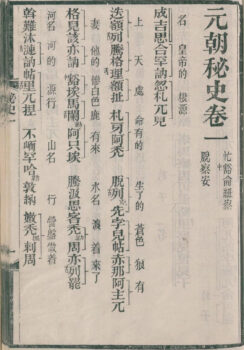 元朝秘史卷一
忙豁侖紐察
脫察安
名 皇帝的 根源
成吉思合罕訥忽札兀児
上 天 處 命有的 生了的 蒼色 狼 有
迭額列騰格理額扯札牙阿禿 脫列先孛児帖赤那阿主兀
妻 他的 慘白色 鹿 有來 水名 渡着 來了
格児該亦訥豁埃馬闌勒阿只埃 騰汲思客禿周亦列罷
河名 河的 源行 山名 行 營盤做着
斡難沐漣訥帖里兀捏 不峏罕哈敦訥 嫩禿黑剌周